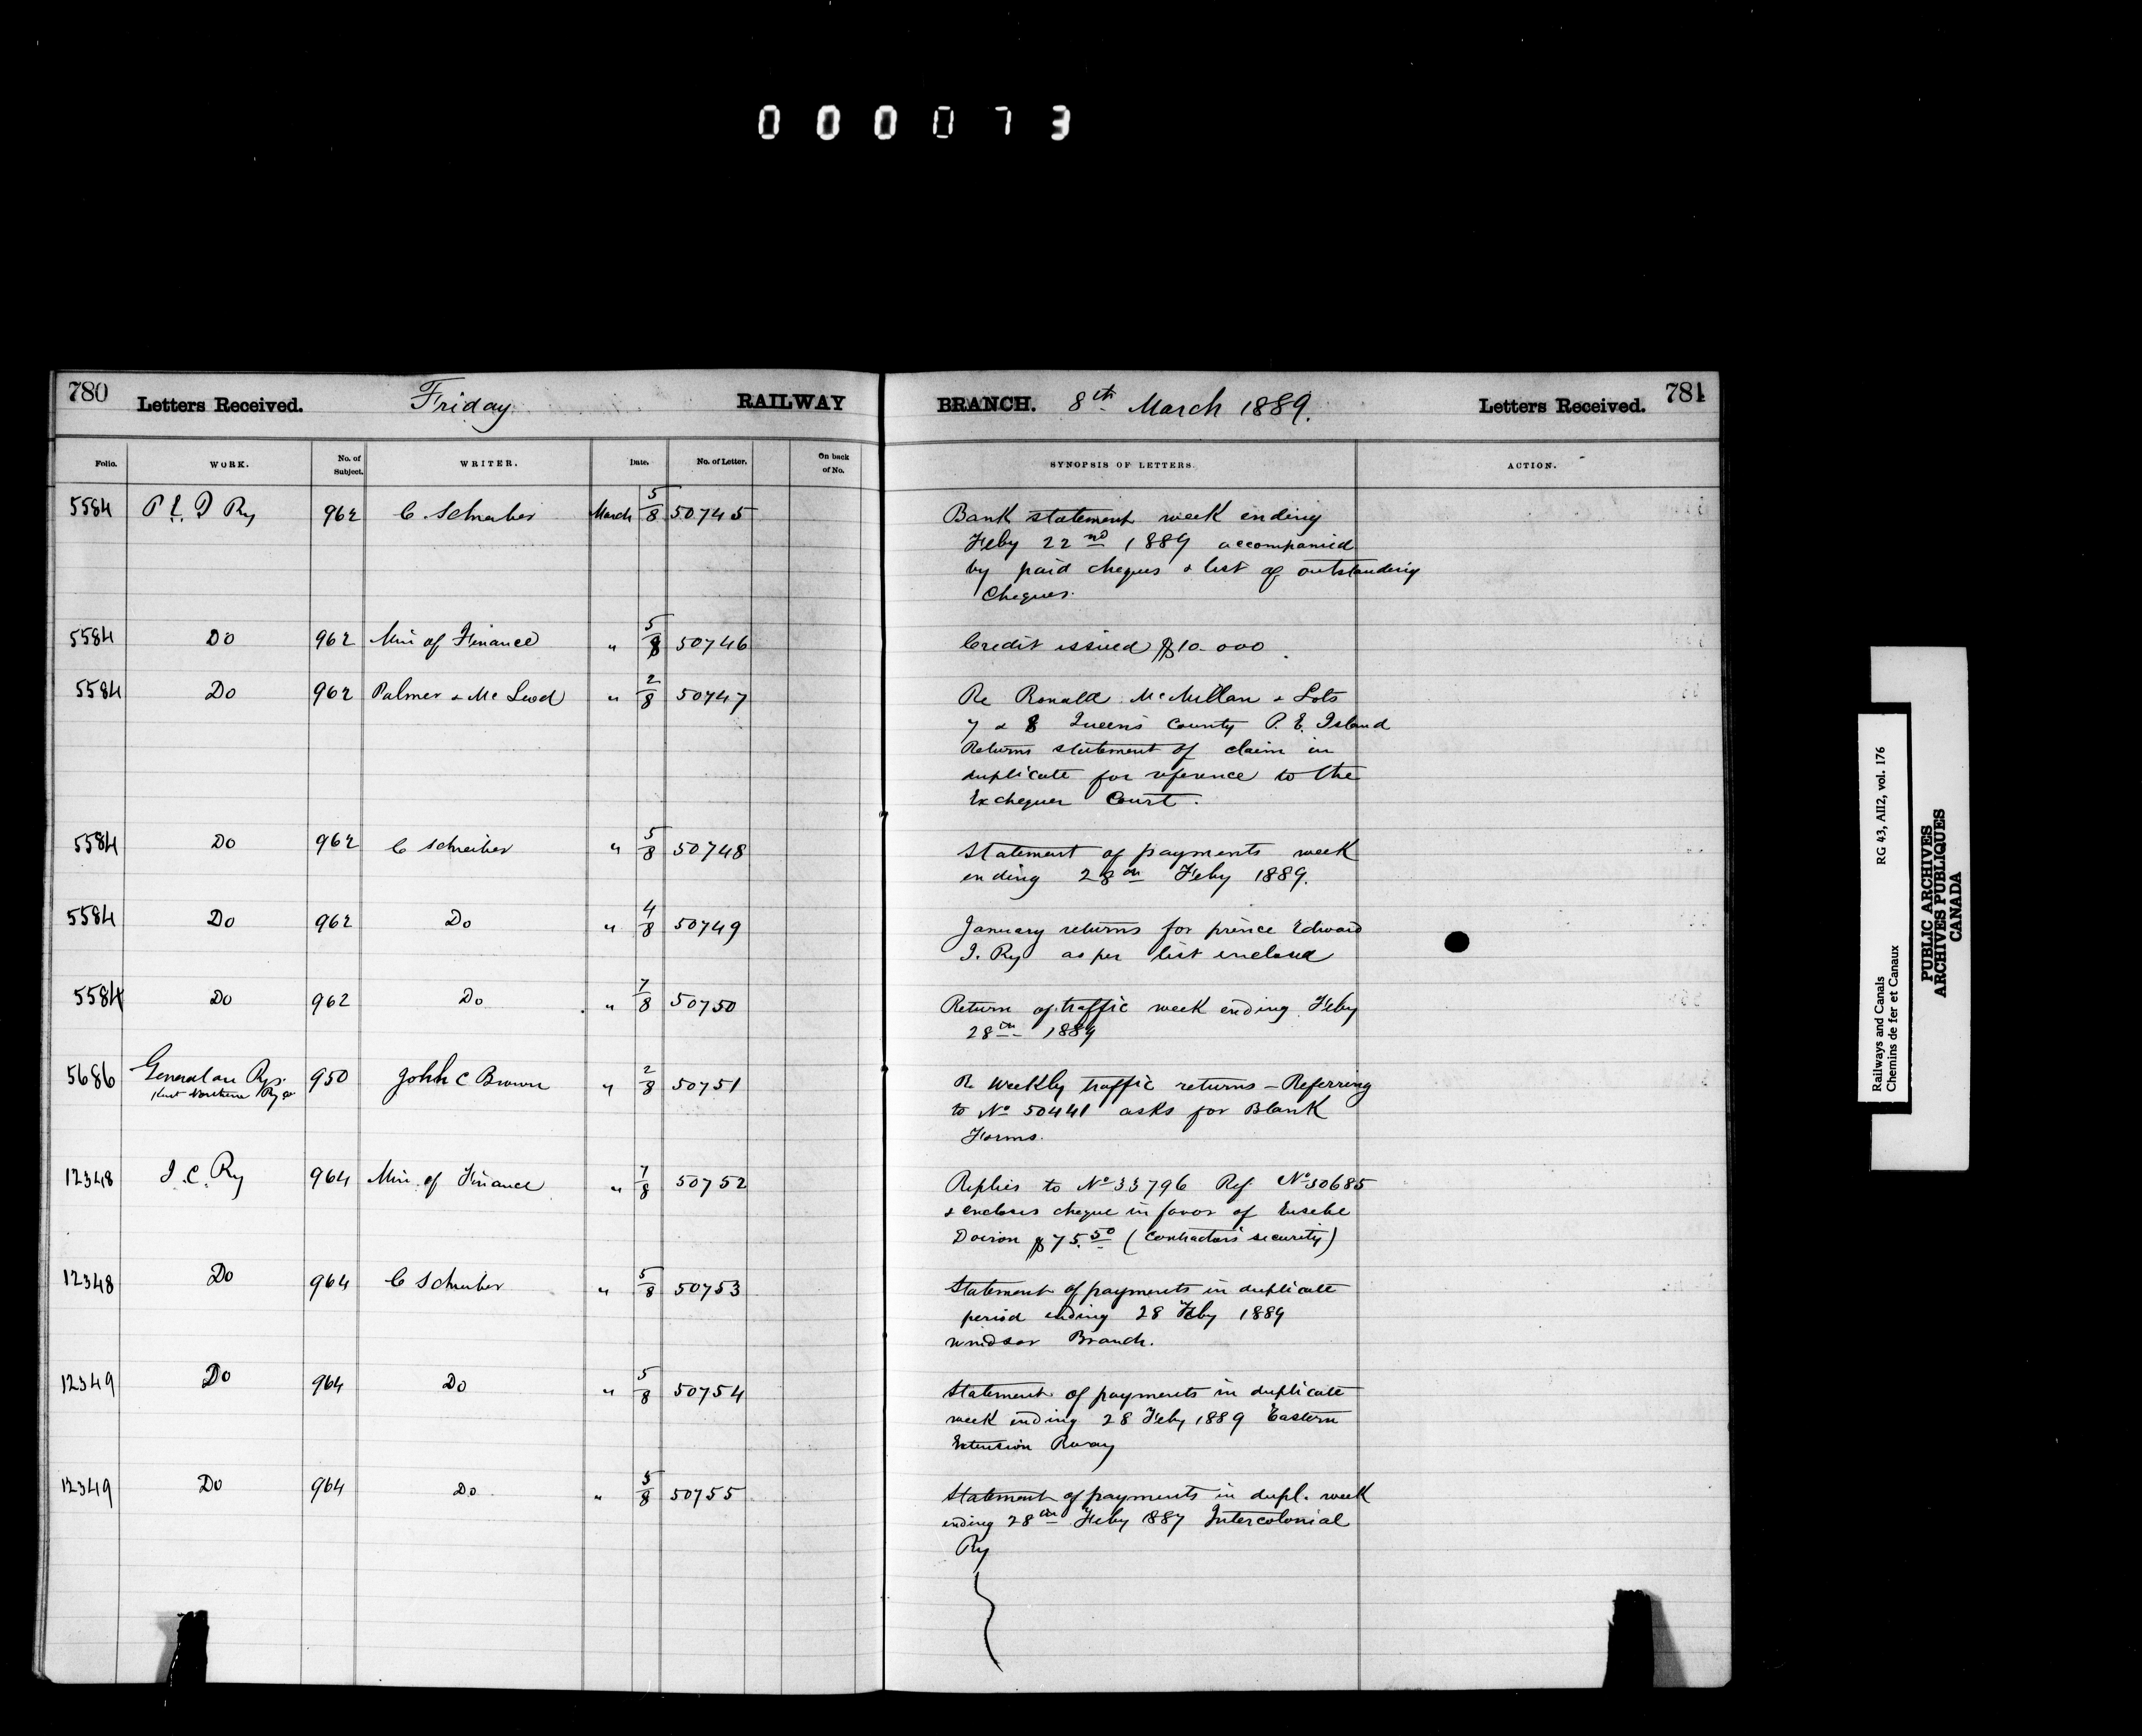 000073
780 Letters Received. Friday. RAILWAY BRANCH. 8th March 1889. Letters Received. 781
Folio. WORK. No. of Subject. WRITER. Date. No. of Letter. On back of No. SYNOPSIS OF LETTERS. ACTION.
5584 P E I Ry 962 C Schreiber March 5/8 50745 Bank statement week ending
Feby 22nd 1889 accompanied
by paid cheques & list of outstanding
Cheques.
5584 Do 962 Min of Finance " 5/8 50746 Credit issued $10 000.
5584 Do 962 Palmer & Mc Leod " 2/8 50747 Re Ronald McMillan & Lots
7 & 8 Queen's County P. E. Island
Returns statement of claim in
duplicate for reference to the
Exchequer Court.
5584 Do 962 C Schreiber " 5/8 50748 Statement of payments week
ending 28th Feby 1889.
5584 Do 962 Do " 4/8 50749 January returns for prince Edward
I. Ry as per list enclosed
5584 Do 962 Do " 7/8 50750 Return of traffic week ending Feby
28th 1889
5686 General on Rys. 950 John C Brown " 2/8 50751 Re Weekly traffic returns - Referring
Kent Northern Ry Co
to No 50441 asks for Blank
Forms.
12348 I. C. Ry 964 Min of Finance " 7/8 50752 Replies to No 33796 Ref No 50685
& encloses cheque in favor of Eusebe
Doiron $75.50 (Contractors security)
12348 Do 964 C Schreiber " 5/8 50753 Statement of payments in duplicate
period ending 28 Feby 1889
Windsor Branch.
12349 Do 964 Do " 5/8 50754 Statement of payments in duplicate
week ending 28 Feby 1889 Eastern
Extension Rway
12349 Do 964 Do " 5/8 50755 Statement of payments in dupl. week
ending 28th Feby 1887 Intercolonial
Ry
Railways and Canals RG 43, AII2, vol. 176
Chemins de fer et Canaux
PUBLIC ARCHIVES
ARCHIVES PUBLIQUES
CANADA